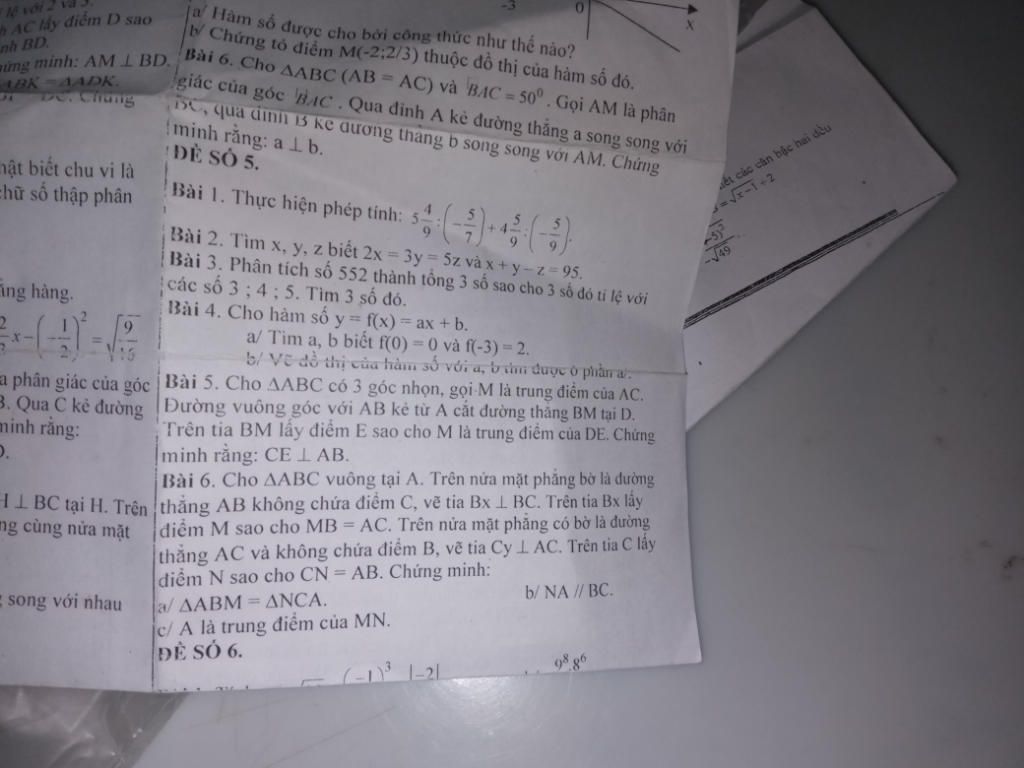 lệ với 2 và 3.
h AC lấy điểm D sao
nh BD.
ứng minh: AM ⊥ BD.
ABK = ΔADK.
DC. Chứng
hật biết chu vi là
chữ số thập phân
ẳng hàng.
x − (−1/2)² = √(9/16)
a phân giác của góc
B. Qua C kẻ đường
minh rằng:
D.
H ⊥ BC tại H. Trên
ng cùng nửa mặt
g song với nhau
-3 0 x
a/ Hàm số được cho bởi công thức như thế nào?
b/ Chứng tỏ điểm M(-2;2/3) thuộc đồ thị của hàm số đó.
Bài 6. Cho ΔABC (AB = AC) và BAC = 50⁰. Gọi AM là phân
giác của góc BAC. Qua đỉnh A kẻ đường thẳng a song song với
BC, qua đỉnh B kẻ đường thẳng b song song với AM. Chứng
minh rằng: a ⊥ b.
ĐỀ SỐ 5.
Bài 1. Thực hiện phép tính: 5 4/9 : (−5/7) + 4 5/9 : (−5/9).
Bài 2. Tìm x, y, z biết 2x = 3y = 5z và x + y – z = 95.
Bài 3. Phân tích số 552 thành tổng 3 số sao cho 3 số đó tỉ lệ với
các số 3 ; 4 ; 5. Tìm 3 số đó.
Bài 4. Cho hàm số y = f(x) = ax + b.
a/ Tìm a, b biết f(0) = 0 và f(-3) = 2.
b/ Vẽ đồ thị của hàm số với a, b tìm được ở phần a/.
Bài 5. Cho ΔABC có 3 góc nhọn, gọi M là trung điểm của AC.
Đường vuông góc với AB kẻ từ A cắt đường thẳng BM tại D.
Trên tia BM lấy điểm E sao cho M là trung điểm của DE. Chứng
minh rằng: CE ⊥ AB.
Bài 6. Cho ΔABC vuông tại A. Trên nửa mặt phẳng bờ là đường
thẳng AB không chứa điểm C, vẽ tia Bx ⊥ BC. Trên tia Bx lấy
điểm M sao cho MB = AC. Trên nửa mặt phẳng có bờ là đường
thẳng AC và không chứa điểm B, vẽ tia Cy ⊥ AC. Trên tia C lấy
điểm N sao cho CN = AB. Chứng minh:
a/ ΔABM = ΔNCA. b/ NA // BC.
c/ A là trung điểm của MN.
ĐỀ SỐ 6.
(−1)³ |−2| 9⁸.8⁶
các căn bậc hai đều
= √x−1 ÷ 2
−5)³
−√49